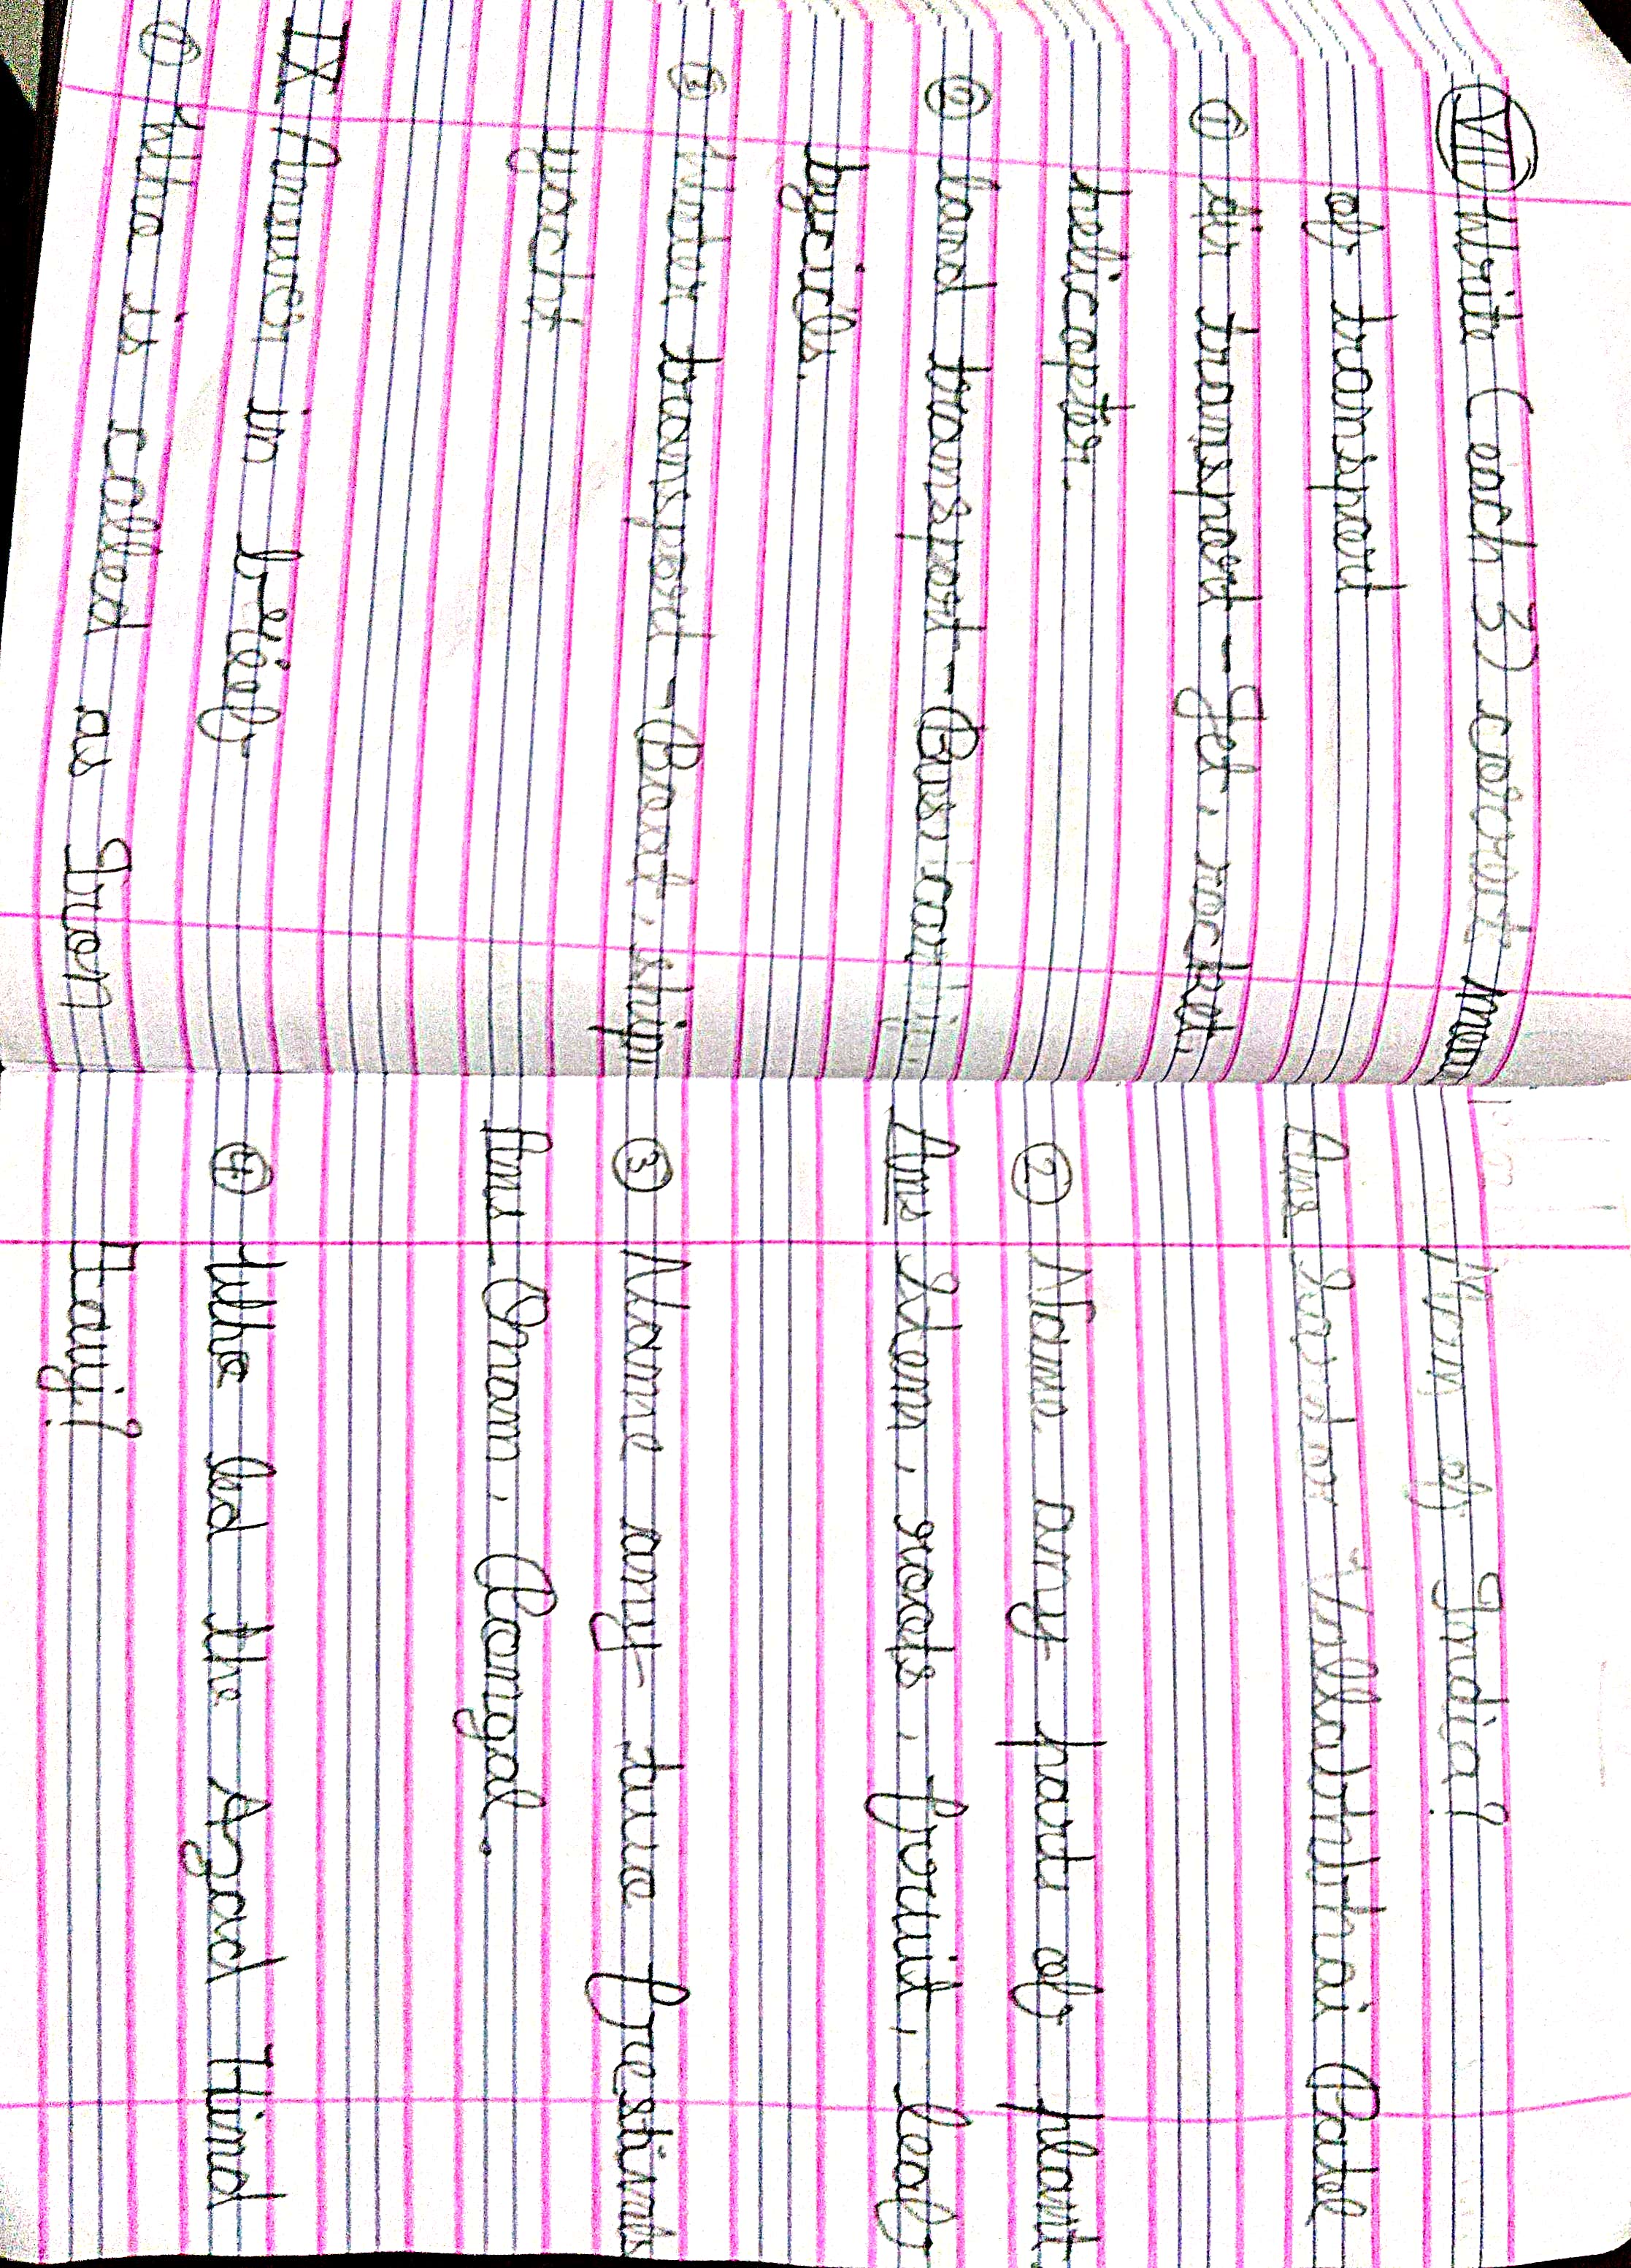 VIII Write (each 3) correct mean
of transport
① Air transport - Jet, rocket,
helicopter.
② Land transport - Bus, car,
bycicle.
③ Water transport - Boat, ship
yacht
IX Answer in brief
① Who is called as Iron
Man of India?
Ans Sardar Vallabhbhai Patel
② Name any part of plant
Ans Stem, roots, fruit, leaf
③ Name any two festivals
Ans Onam, Pongal.
④ Who led the Azad Hind
Fauj?